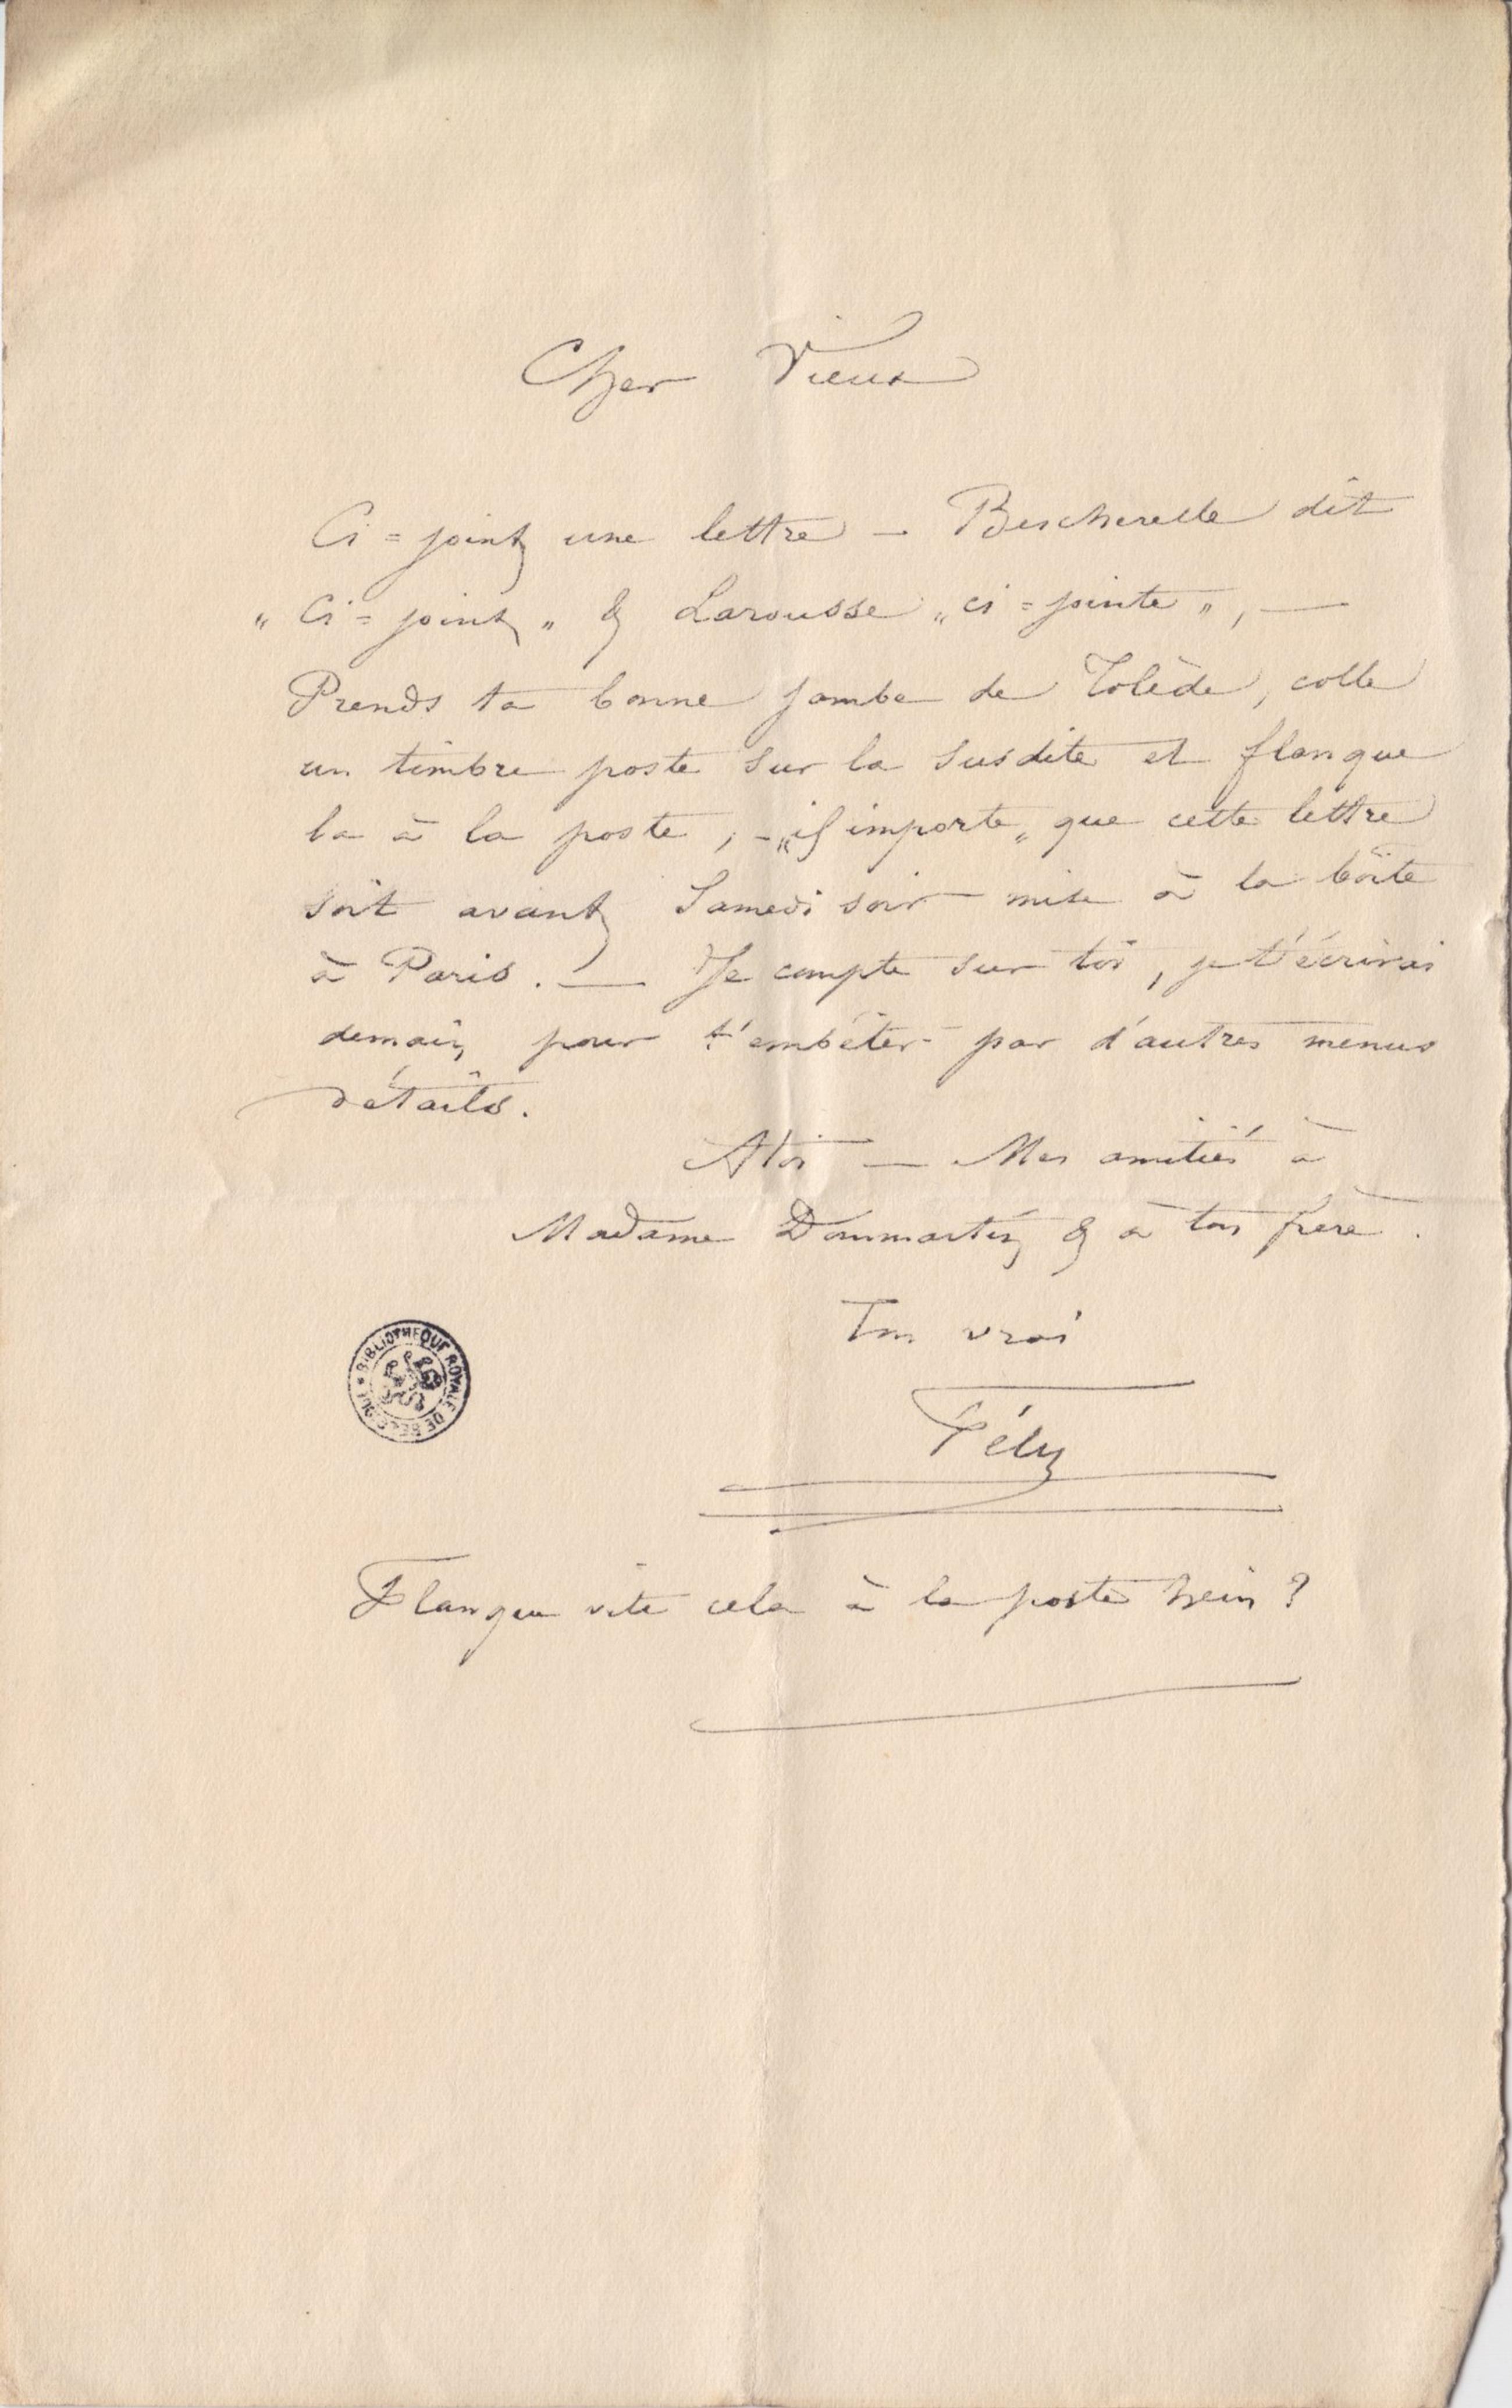 Cher Vieux
Ci=joint une lettre — Bescherelle dit
„ Ci=joint „ & Larousse „ ci=jointe „, —
Prends ta bonne jambe de Tolède, colle
un timbre poste sur la susdite et flanque
la à la poste, – „il importe„ que cette lettre
soit avant Samedi soir mise à la boîte
à Paris. — Je compte sur toi, je t'écrirai
demain pour t'embêter par d'autres menus
détails.
A toi — Mes amitiés à
Madame Dommartin & à ton frère.
Ton vrai
Fély
BIBLIOTHEQUE ROYALE DE BELGIQUE
Flanque vite cela à la poste hein ?